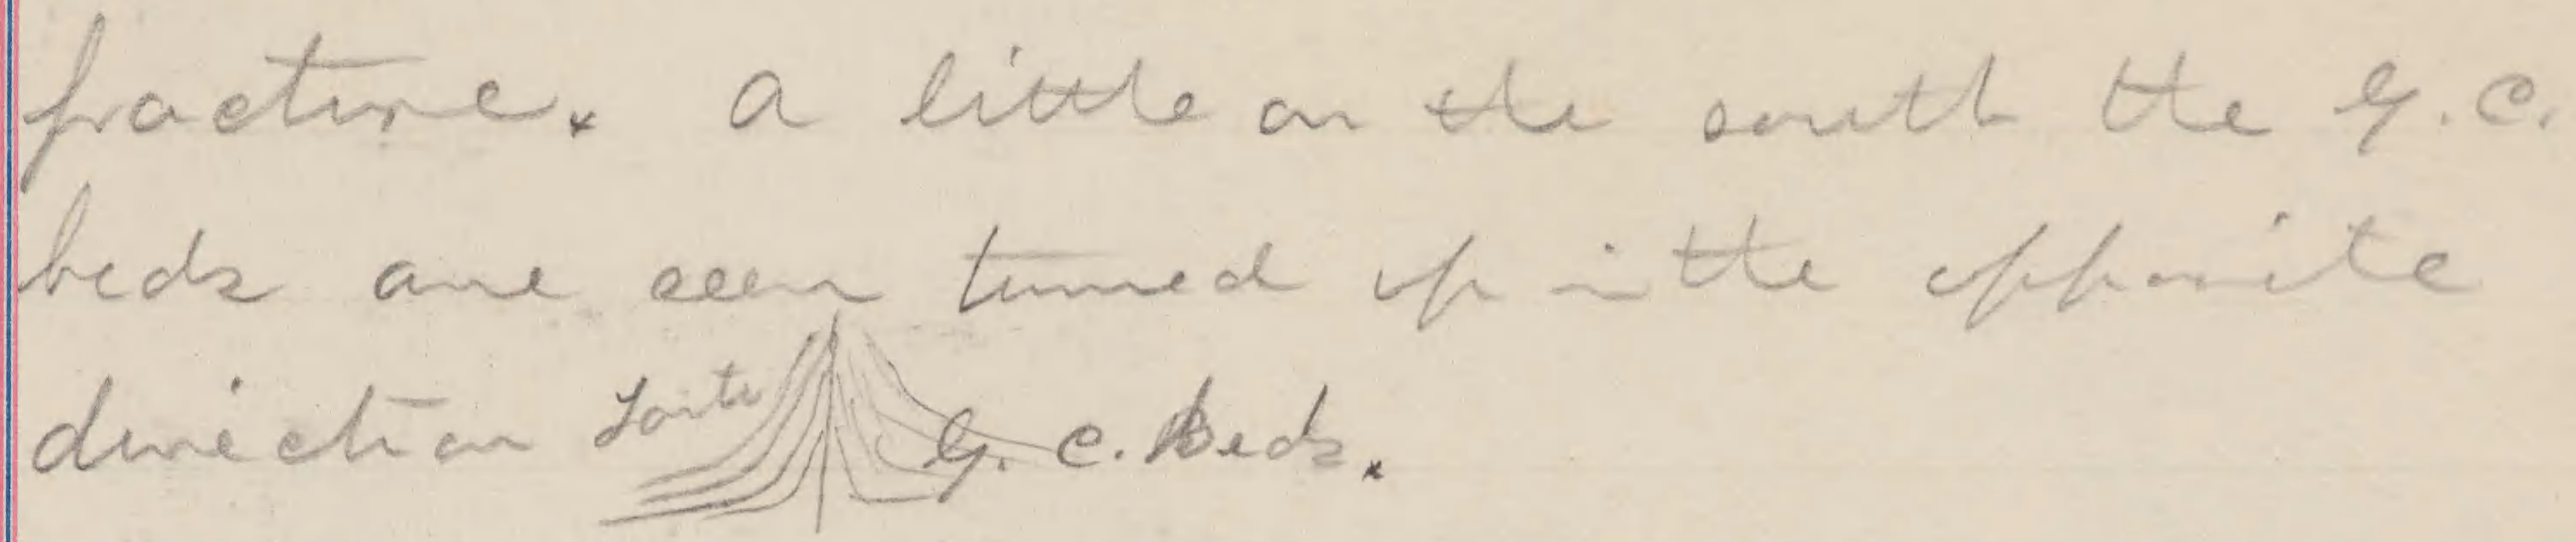 fracture. A little on the south the G. C.
beds are seen turned up in the opposite
direction G. C. Beds.